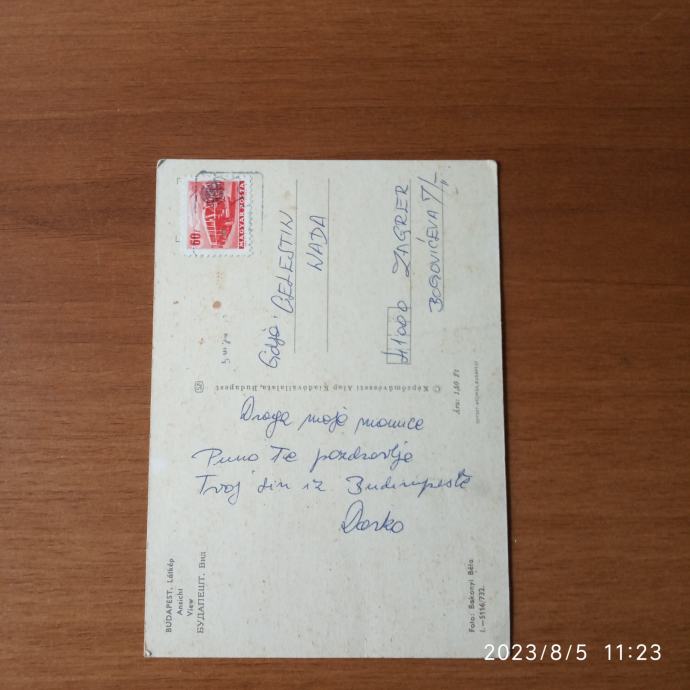 60f
MAGYAR POSTA
Gdja:
CELESTIN
NADA
41000 ZAGREB
BOGOVIĆEVA 7/I
© Képzőművészeti Alap Kiadóvállalata, Budapest
Ára: 1,60 Ft
Draga moja mamice
Puno Te pozdravlja
Tvoj sin iz Budimpešte
Darko
BUDAPEST. Látkép
Ansicht
View
БУДАПЕШТ. Вид
Foto: Bakonyi Béla
I.—5116/732.
2023/8/5 11:23